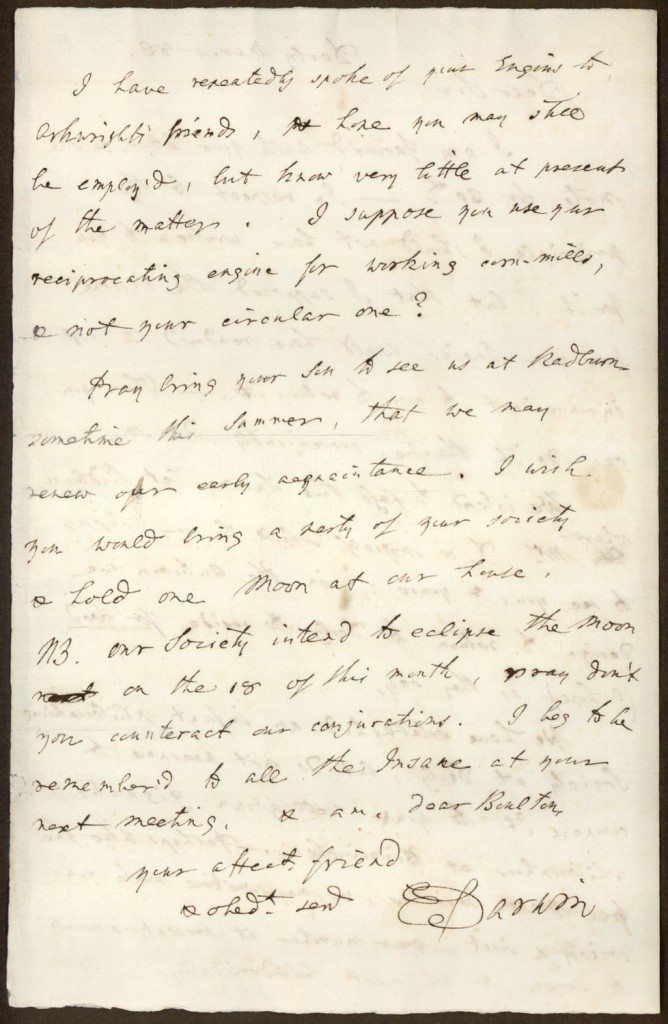 I have repeatedly spoke of your Engins to
Arkwright's friends, & hope you may still
be employ'd, but know very little at present
of the matter. I suppose you use your
reciprocating engine for working corn-mills,
& not your circular one?
Pray bring your Son to see us at Radburn
sometime this Summer, that we may
renew our early acquaintance. I wish
you would bring a party of your society
& hold one Moon at our house.
NB. our Society intend to eclipse the Moon
on the 18 of this month, pray don't
you counteract our conjurations. I beg to be
remember'd to all the Insane at your
next meeting. & am, dear Boulton,
your affect. friend
& obedt. serv
E Darwin